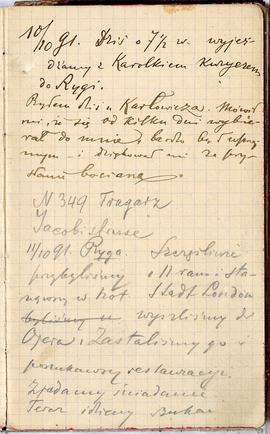 10/10 91. Dziś o 7½ w. wyjeż-
dżamy z Karolkiem Kuryerem
do Rygi.
Byłem dziś u Karłowicza. Mówił
mi, że się od kilku dni wybie-
rał do mnie, bardzo był uprzej-
mym i dziękował mi za przy-
słanie bociana.
N 349 Tragatz
Jacobistrasse
11/10 91. Ryga. Szczęśliwie
przybyliśmy o 11 rano i sta-
nąwszy w hot. Stadt London
wyszliśmy do
Opera i Zastaliśmy go i
poszukawszy restauracyę
Zjadamy śniadanie
Teraz idziemy